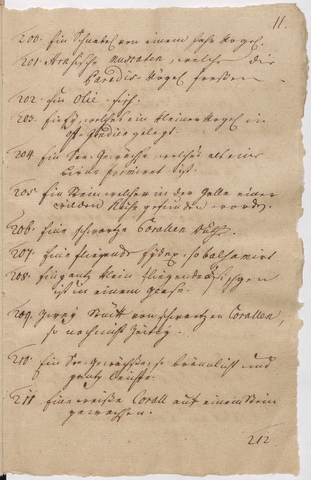 11.
200. Ein Schnabel von einem Jahr Vogel.
201. Arabische Muscaten, welche die
Paradis-Vögel freßen
202. Ein Olie-fisch.
203. Ein Ey, welches ein kleiner Vogel in
gelegt.
204. Ein See-Gewächs, welches als eine
Birne formiert ist.
205. Ein Stein welcher in der Galle einer
wilden Kuhe gefunden worden.
206. Eine schwartze Corallen Ruthe.
207. Eine fliegende Eydex, so balsamirt.
208. Ein gantz klein fliegendes
ist in einem Glase.
209. Zwey Stück von schwartzen Corallen
so noch nicht Zeitig.
210. Ein See-Gewächse, so bräunlicht und
gantz
211. Eine weiße Corall auf einem Stein
gewachsen.
212